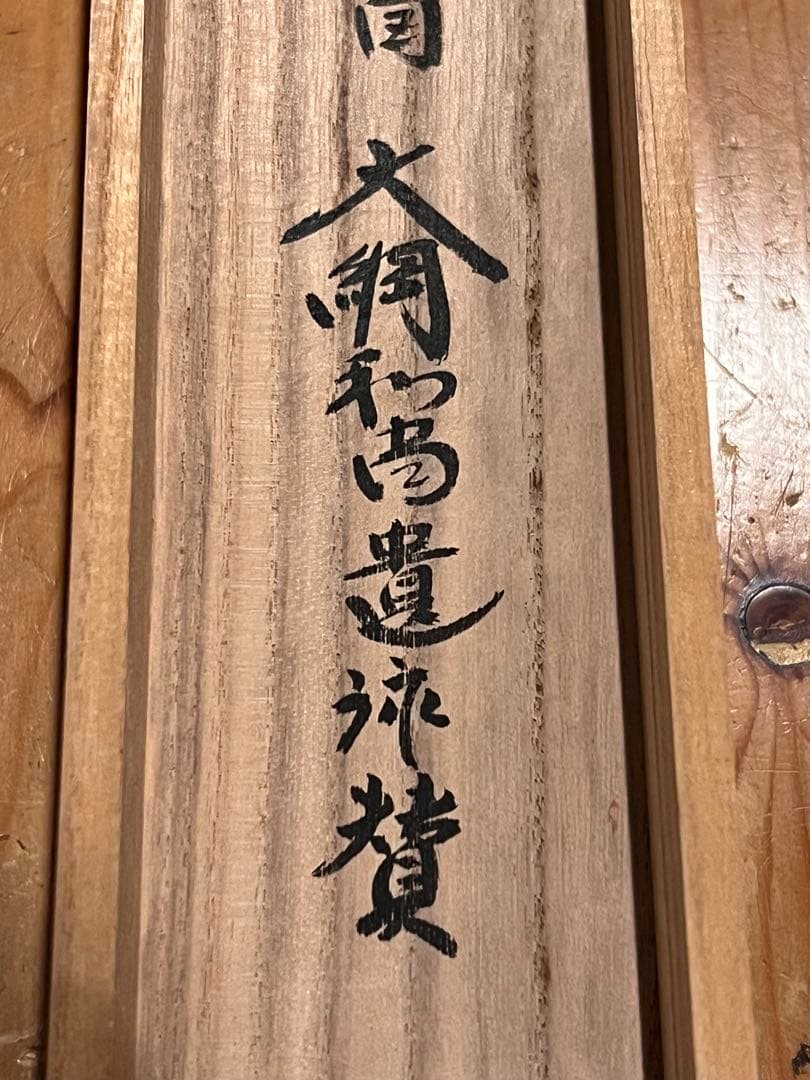 大綱和尚遺詠賛